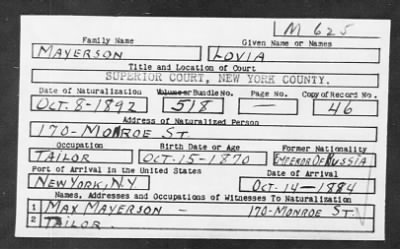 M 625
Family Name Given Name or Names
MAYERSON LOVIA
Title and Location of Court
SUPERIOR COURT, NEW YORK COUNTY.
Date of Naturalization Volume or Bundle No. Page No. Copy of Record No.
OCT. 8-1892 518 — 46
Address of Naturalized Person
170-MONROE ST.
Occupation Birth Date or Age Former Nationality
TAILOR OCT-15-1870 EMPEROR OF RUSSIA
Port of Arrival in the United States Date of Arrival
NEW YORK, N.Y OCT-14-1884
Names, Addresses and Occupations of Witnesses To Naturalization
1 MAX MAYERSON — 170-MONROE ST.
2 TAILOR.